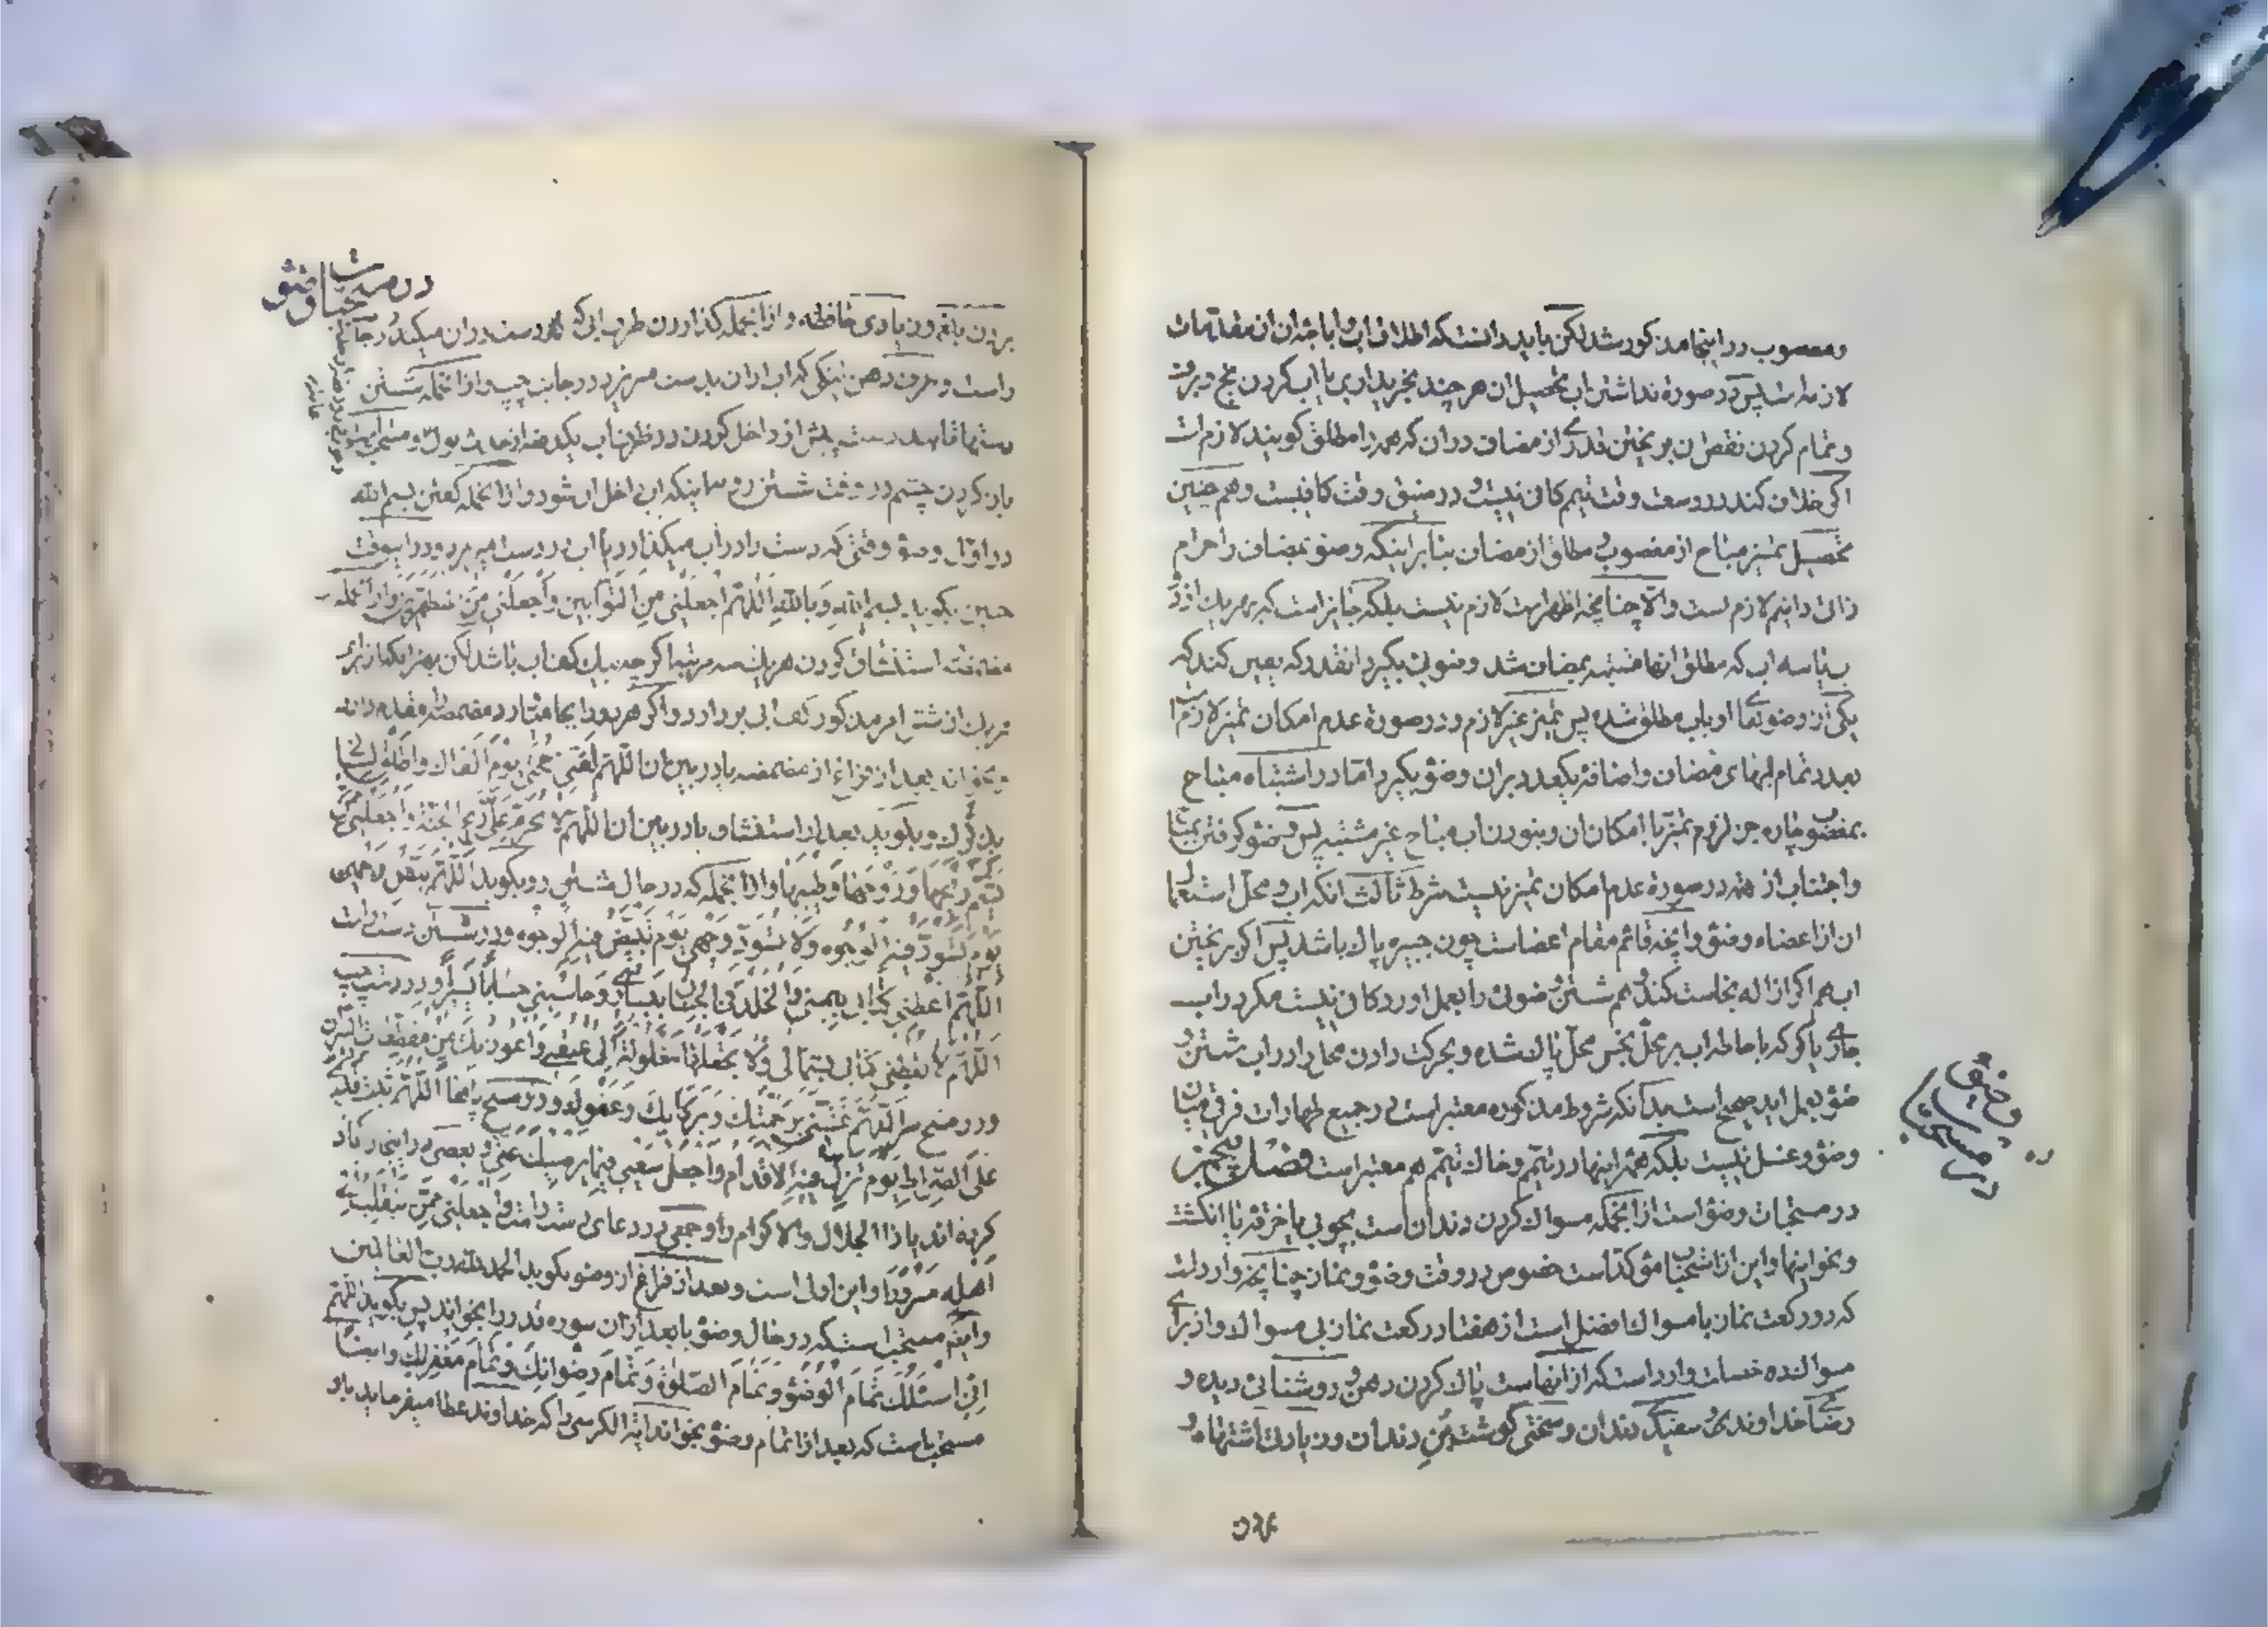 ومغصوب در اینجا مذکور شد لکن باید دانست که اطلاق اب و اباحه ان از مقدمات
لازمه است پس در صورة نداشتن اب تحصیل ان هر چند بخریداری یا اب کردن یخ و برف
و تمام کردن نقص ان بریختن قدری از مضاف دران که همه را مطلق کویند لازم است
اکر خلاف کند در وسعت وقت تیمم کافی نیست و در ضیق وقت کافیست و هم چنین
تحصیل تمیز مباح از مغصوب و مطلق از مضاف بنابر اینکه وضو بمضاف را حرام
ذاتی دانیم لازم است و الا چنانچه اظهر است لازم نیست بلکه جایز است که بهر یک از دو
یا سه اب که مطلق انها مشتبه بمضاف شد وضوئی بکیرد انقدر که یقین کند که
یکی از وضوها او باب مطلق شده پس تمیز غیر لازم و در صورة عدم امکان تمیز لازم است
بعدد تمام ابهای مضاف و اضافه یکعدد بران وضو بکیرد اما در اشتباه مباح
بمغصوب چاره جز لزوم تمیز با امکان ان و نبودن اب مباح غیر مشتبه پس وضو کرفتن
و اجتناب از همه در صورة عدم امکان تمیز نیست شرط ثالث انکه اب و محل استعمال
ان از اعضاء وضو و انچه قائم مقام اعضاست چون جبیره پاک باشد پس اکر بریختن
اب هم اکر ازاله نجاست کند و هم شستن وضوئی را بعمل اورد کافی نیست مکر در اب
جاری یا کر که باحاطه اب بر محل نجس محل پاک شده و بحرکت دادن محل در اب شستن
وضو بعمل اید صحیح است بدانکه شروط مذکوره معتبر است در جمیع طهارات فرقی میان
وضو و غسل نیست بلکه همه اینها در تیمم و خاک تیمم هم معتبر است فصل پنجم
در مستحبات وضو است از انجمله مسواک کردن دندان است بچوبی یا خرقه یا انکشت
و نحو اینها و این از مستحبات مؤکد است خصوص در وقت وضو و نماز چنانچه وارد است
که دو رکعت نماز با مسواک افضل است از هفتاد رکعت نماز بی مسواک و از برای
مسواک ده خصلت وارد است که از انهاست پاک کردن دهن و روشنائی دیده و
رضای خداوندی و سفیدی دندان و سختی کوشت بن دندان و زیادتی اشتها و
در مستحبات وضو
در مستحبات وضو
بردن بلغم و زیادی حافظه و از انجمله کذاردن ظرف ابی که دست دران میکند در جانب
راست و ظرف دهن تنکی که اب از ان بدست میریزد در جانب چپ و از انجمله شستن
دستها تا بند دست پیش از داخل کردن در ظرف اب یکدفعه از حدث بول و
باز کردن چشم در وقت شستن رو اینکه اب داخل ان شود و از انجمله کفتن بسم الله
در اول وضو وقتی که دست را در اب میکذارد یا اب در دست میریزد و در اینوقت
چنین بکوید بسم الله و بالله اللهم اجعلنی من التوابین و اجعلنی من المتطهرین و از انجمله
مضمضه استنشاق کردن هر یک سه مرتبه اکر چه بیک کف اب باشد لکن بهتر انکه از برای
هر یک از شش امر مذکور کف ابی بردارد و اکر هر دو را بجا میاورد مضمضه را مقدم دارد
و بخواند بعد از فراغ از مضمضه یا در بین ان اللهم لقنی حجتی یوم القاک و اطلق لسانی
بذکرک و بکوید بعد از استنشاق یا در بین ان اللهم لا تحرم علی ریح الجنة و اجعلنی ممن
یشم ریحها و روحها و طیبها و از انجمله که در حال شستن رو بکوید اللهم بیض وجهی
یوم تسود فیه الوجوه و لا تسود وجهی یوم تبیض فیه الوجوه و در شستن دست راست
اللهم اعطنی کتابی بیمینی و الخلد فی الجنان بیساری و حاسبنی حسابا یسیرا و در دست چپ
اللهم لا تعطنی کتابی بشمالی و لا تجعلها مغلولة الی عنقی و اعوذ بک من مقطعات النیران
و در مسح سر اللهم غشنی برحمتک و برکاتک و عفوک و در مسح پاها اللهم ثبت قدمی
علی الصراط یوم تزل فیه الاقدام و اجعل سعیی فیما یرضیک عنی و بعضی در اینجا زیاد
کرده اند یا ذا الجلال و الاکرام را و جمعی در دعای دست راست و اجعلنی ممن ینقلب الی
اهله مسرورا و این اولی است و بعد از فراغ از وضو بکوید الحمد لله رب العالمین
و ایضا مستحب است که در حال وضو یا بعد از ان سوره قدر را بخواند پس بکوید اللهم
انی اسئلک تمام الوضو و تمام الصلوة و تمام رضوانک و تمام مغفرتک و ایضا
مستحب است که بعد از اتمام وضو بخواند ایة الکرسی را که خداوند عطا میفرماید باو